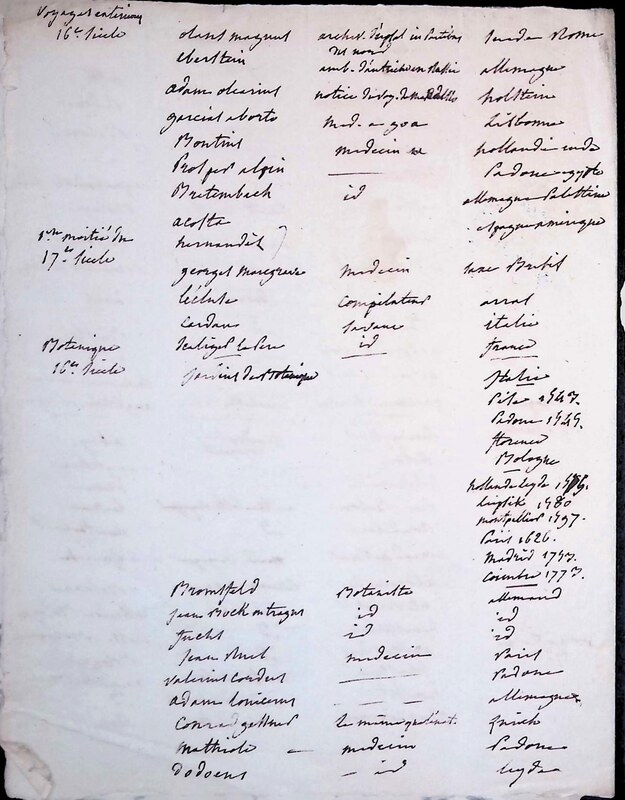 Voyages exterieurs
16e. siecle olaus magnus archev. d'upsal in partibus suede Rome
du nord
eberstein amb. d'autriche en Russie allemagne
adam olearius notice du voy. de holstein
garcias aborto med. a goa Lisbonne
Bontius medecin hollande inde
Prosper alpin — Padoue egypte
Breitembach id allemagne Palestine
acosta espagne amerique
1re. moitié du hernandès
17e. siecle
georges margrave medecin saxe Bresil
lecluse compilateur arras
Cardan savant italie
Botanique Scaliger le Pere id france
16e. siecle jardins de Botanique italie
Pise 1543.
Padoue 1545.
florence
Bologne
hollande leyde
leipsik 1580
montpellier 1597.
Paris 1626.
Madrid 1753.
Coimbre 1773.
Bromsfeld Botaniste allemand
jean Bock ou tragus id id
fuchs id id
jean Ruel medecin Paris
valerius Cordus — Padoue
adam lonicerus — — allemagne
Conrad gessner le même zurich
mathiole — medecin Padoue
dodoens — id leyde